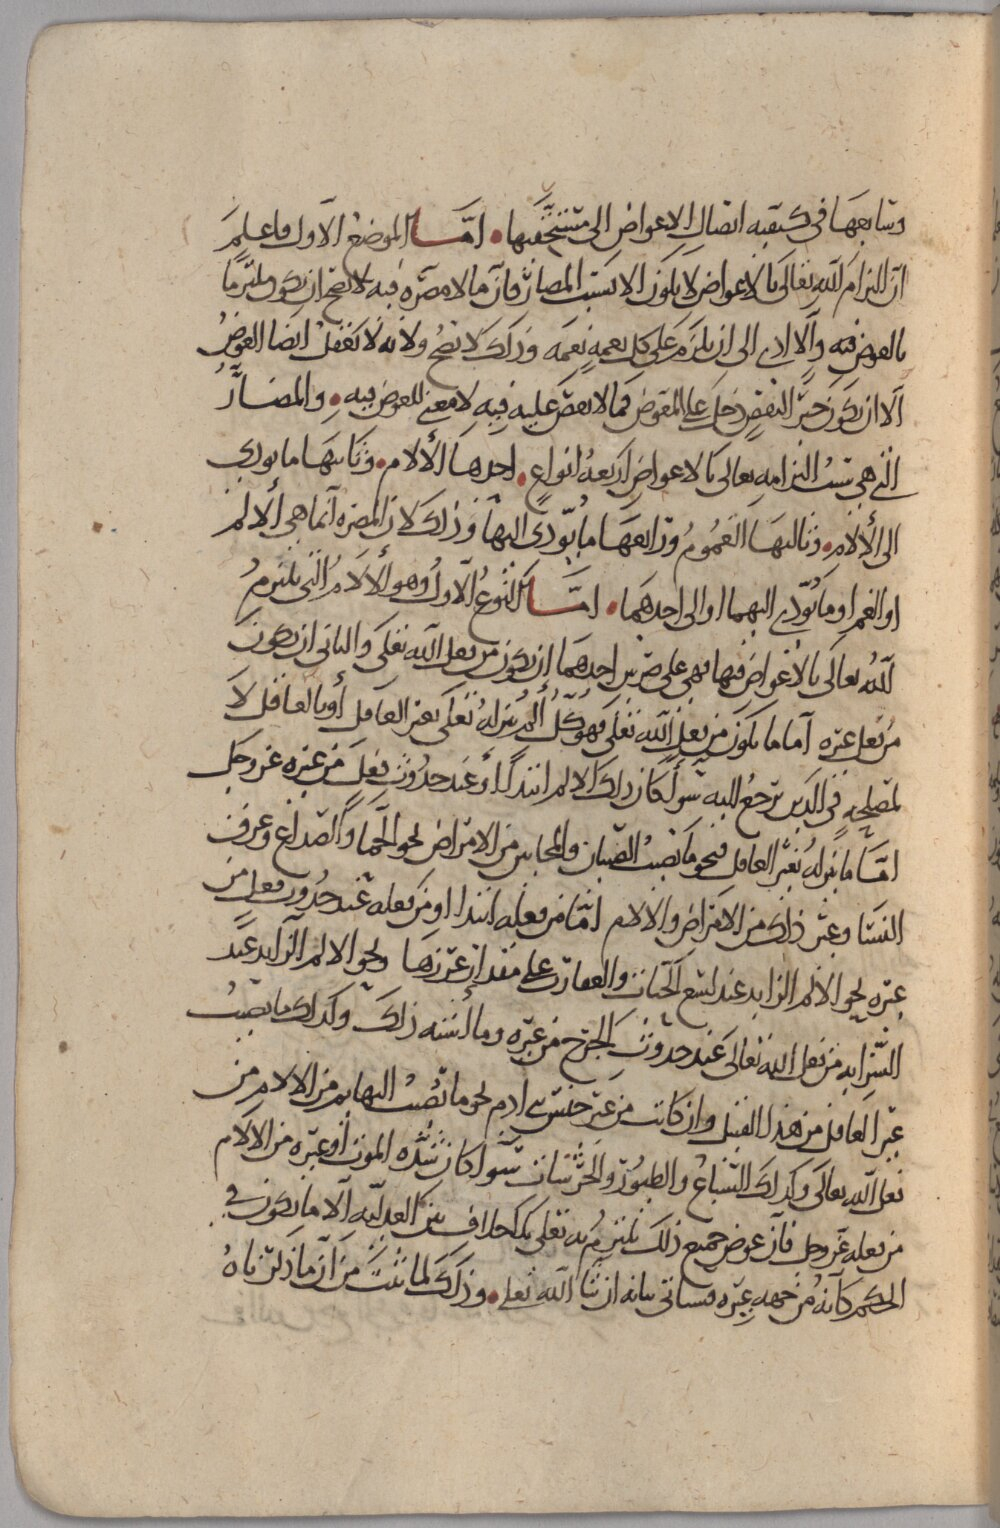 وسابعها في كيفيه ايصال الاعواض الى مستحقيها • امــا الموضع الاول فاعلم
ان التزام الله تعالى بالاعواض لا يكون الا بسبب المضار فان ما لا مضره فيه لا يصح ان يكون ملتزما
بالعوض فيه والا ادى الى ان يلتزم على كل نعمه نعمه وذلك لا يصح ولانه لا يعقل ايضا العوض
الا ان يكون جبرا لنقص دخل على المعوض فما لا نقص عليه فيه لا معنى للعوض فيه • والمضار
التي هي سبب التزامه تعالى بالاعواض اربعه انواع • احدها الآلام • وثانيها ما يودي
الى الآلام • وثالثها الغموم ورابعها ما يودي اليها وذلك لان المضره انما هي الالم
او الغم او ما يودي اليهما او الى احدهما • امــا النوع الاول وهو الآلام التي يلتزم
الله تعالى بالاعواض فيها فهي على ضربين احدهما ان يكون من فعل الله تعلى والثاني ان يكون
من فعل غيره اما ما يكون من فعل الله تعلى فهو كل الم ينزله تعلى بغير العاقل أو بالعاقل لا
لمصلحه في الدين ترجع اليه سوا كان ذلك الالم ابتداً أو عند حدوث فعل من غيره عز وجل
امّا ما ينزله بغير العاقل فنحو ما يصيب الصبيان والمجانين من الامراض نحو الحما والصداع وعرق
النسا وغير ذلك من الامراض والالام امّا من فعله ابتدا او من فعله عند حدوث فعل من
غيره نحو الالم الزايد عند لسع الحيات والعقارب على مقدار غرزها ونحو الالم الزايد عند
السرايه من فعل الله تعالى عند حدوث الجرح من غيره وما أشبه ذلك وكذلك ما يصيب
غير العاقل من هذا القبيل وان كانت من غير جنس بني ادم نحو ما يصيب البهايم من الالام من
فعل الله تعالى وكذلك السباع والطيور والحشرات سوا كان شده الموت أو غيره من الالام
من فعله عز وجل فان عوض جميع ذلك يلتزم به تعلى بلا خلاف بين العدليه الا ما يكون في
الحكم كانه من جهه غيره وسياتي بيانه ان شا الله تعلى • وذلك لما ثبت من ان ما ذكرناه